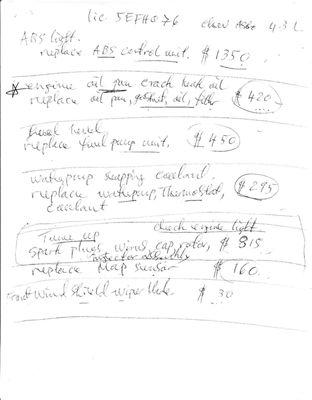 lic 5EFH076 chev Astro 4.3 L
ABS light.
replace ABS control unit. $1350
engine oil pan crack leak oil
replace oil pan, gasket, oil, filter $420
replace fuel pump unit. $450
waterpump seapping coolant.
replace waterpump, Thermostat, $295
coolant
Tune up check engine light
spark plugs, wires, cap rotor, $815
injector assembly
replace Map sensor $160
front wind shield wiper $30